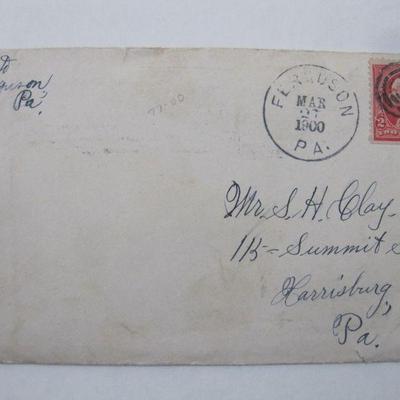 to
guson,
Pa.
77.00
FERGUSON
MAR
27
1900
PA.
2
Mr. S. H. Clay
115 Summit S
Harrisburg,
Pa.